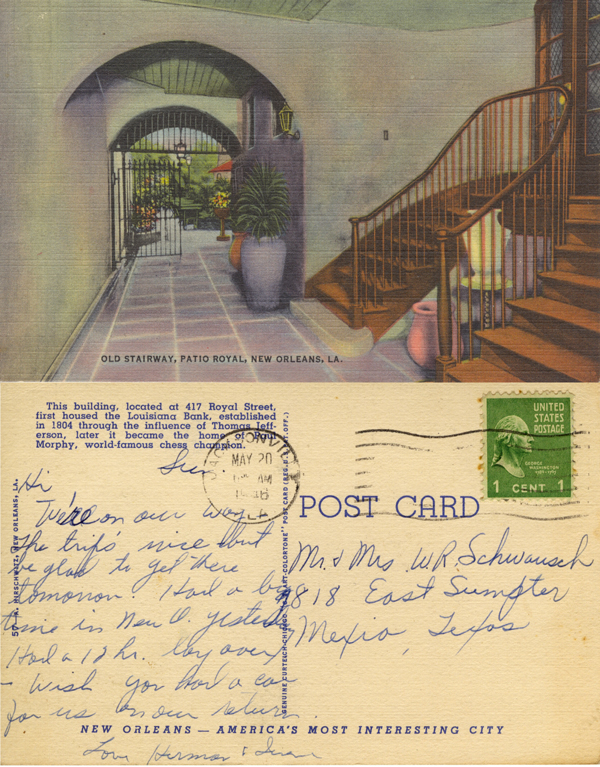 OLD STAIRWAY, PATIO ROYAL, NEW ORLEANS, LA.
This building, located at 417 Royal Street,
first housed the Louisiana Bank, established
in 1804 through the influence of Thomas Jeff-
erson, later it became the home of Paul
Morphy, world-famous chess champion.
Sun.
MAY 20
AM
UNITED
STATES
POSTAGE
GEORGE
WASHINGTON
1 CENT 1
POST CARD
Hi
We're on our way
the trip's nice but
be glad to get there
tomorrow. Had a big
time in New O. yesterday
Had a 12 hr. lay over
- Wish you had a car
for us on our return.
Love Herman &
Mr. & Mrs W.R. Schwausch
818 East Sumpter
Mexia, Texas
HIRSCHWITZ, NEW ORLEANS, LA.
NEW ORLEANS — AMERICA'S MOST INTERESTING CITY